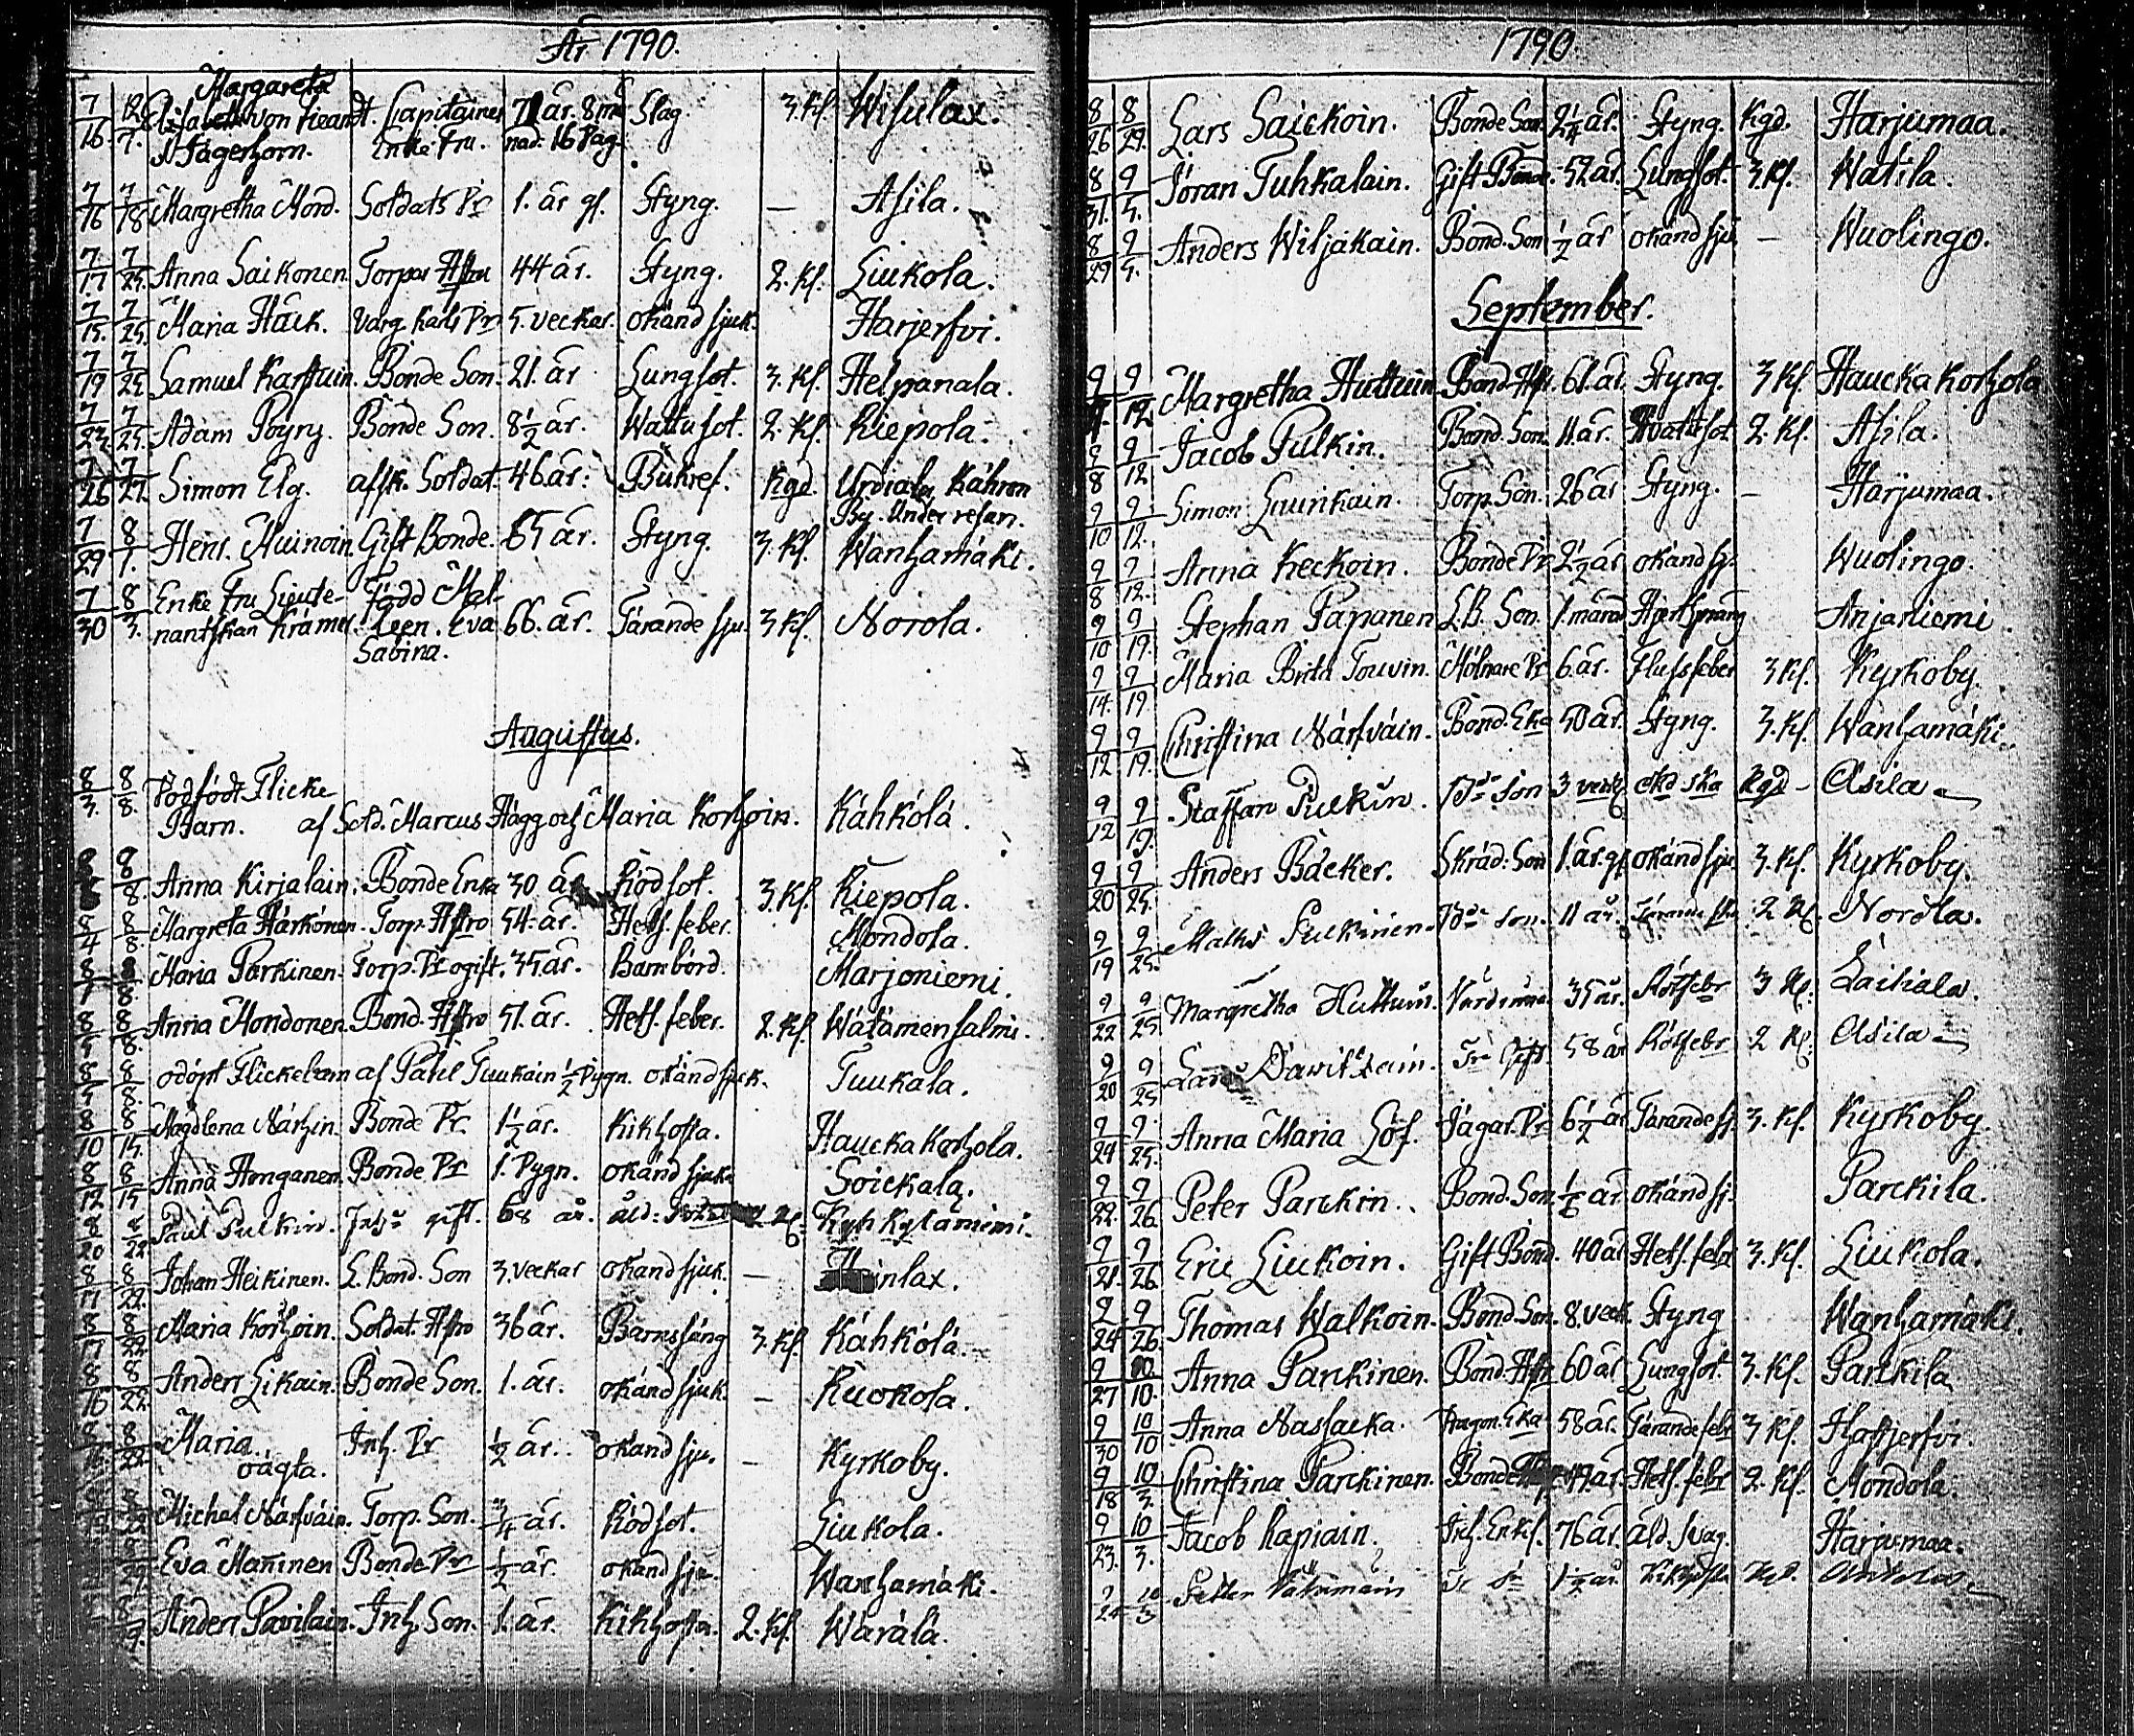 År 1790.
Margareta
7/16. 12/7. Elisabeth von Heandt. Capitaines 71 år. 8 må Slag. 3. Kl. Wisulax.
N. Jägerhorn. Enke Fru. nad. 16 Dag.
7/16 7/18 Margretha Mord. Soldats Pr 1. år gl. Styng. — Asila.
7/17 7/25. Anna Saikonen. Torpar Hstru 44 år. Styng. 2. Kl. Liukola.
7/15. 7/25. Maria Häck. Varg. Karls Pr 5. veckar. okänd sjuk. Harjerfvi.
7/19 7/25. Samuel Karstuin. Bonde Son. 21. år Lungsot. 3. Kl. Helpanala.
7/23 7/25. Adam Pöyry. Bonde Son. 8½ år. Wattusot. 2. Kl. Riepola.
7/26 7/27. Simon Elg. afsk. Soldat. 46 år. Bukref. Kgd. Urdiala, Kähron
By. Under resan.
7/29 8/1. Henr. Muinoin. Gift Bonde. 65 år. Styng. 3. Kl. Wanhamäki.
7/30 8/3. Enke Fru Lieute- Född Mal-
nantskan Krämer. leen. Eva 66. år. Tärande sju. 3 Kl. Norola.
Sabina.
Augustus.
8/3. 8/8. Dödfödt Flicke
Barn. af Sold. Marcus Hägg och Maria Korhoin. Kähkölä.
8/8. Anna Kirjalain. Bonde Enka 30 år Rödsot. 3. Kl. Riepola.
8/4 8/8. Margreta Härkönen. Torp. Hstro 54. år. Hets. feber. Mondola.
Maria Parkinen. Torp. Pr ogift. 35. år. Barnbörd. Marjoniemi.
Anna Mondonen. Bond. Hstro 51. år. Hets. feber. 2. Kl. Wätämensalmi.
odöpt Flickebarn af Påhl Tuukain ½ Dygn. okänd sjuk. Tuukala.
8/10 8/15. Magdlena Närhin. Bonde Pr. 1½ år. Kikhosta. Haucka Korhola.
8/12 8/15 Anna Honganen. Bonde Pr 1. Dygn. okänd sjuk. Soickala.
8/20 8/22 Paul Pulkin. gift. 68 år. Kyhkyläniemi.
8/17 8/22. Johan Heikinen. L. Bond. Son 3. veckar okänd sjuk. —
8/17 8/22. Maria Korhoin. Soldat. Hstro 36 år. Barnssäng 3. Kl. Kähkölä.
8/16 8/22. Anders Likain. Bonde Son. 1. år. okänd sjuk. — Kuokola.
8/22. Maria Inh. Pr ½ år. okänd sju. — Kyrkoby.
oägta.
Michel Närfväin. Torp. Son. ¾ år. Rödsot. Liukola.
Eva Maninen Bonde Pr ½ år. okänd sju. Wanhamäki.
Anders Pavilain. Inh. Son. 1. år. Kikhosta. 2. Kl. Wärälä.
1790.
8/26 8/29. Lars Saickoin. Bonde Son 2¼ år. Styng. Kgd. Harjumaa.
8/31. 9/5. Jöran Tuhkalain. Gift Bonde. 52 år. Lungsot. 3. Kl. Watila.
8/29 9/5. Anders Wiljakain. Bond. Son ½ år okänd sju — Wuolingo.
September.
9/12 Margretha Huttuin. Bond. Hstr. 61. år. Styng. 3 Kl. Haucka Korhola
9/8 9/12 Jacob Pulkin. Bond. Son. 11. år. 2. Kl. Asila.
9/10 9/12. Simon Laurikain. Torp. Son. 26 år Styng. — Harjumaa.
9/8 9/12. Anna Keckoin. Bonde Pr 2½ år okänd sj. Wuolingo.
9/10 9/19. Stephan Papanen L. B. Son. 1. månad Hjertsprång Anjaniemi.
9/14. 9/19. Maria Brita Touvin. Mölnare Pr 6. år. Flussfeber 3 Kl. Kyrkoby.
9/12 9/19. Christina Närfväin. Bond. Eka 50 år. Styng. 3. Kl. Wanhamäki.
9/12 9/19. Staffan Pulkin. Bde Son 3 veck okd ska Kgd — Asila
9/20 9/25. Anders Bäcker. Skräd. Son 1. år. gl okänd sju. 3. Kl. Kyrkoby.
9/19 9/25. Maths Pulkinen. Bde Son. 11 år. 2 Kl. Norola.
9/22 9/25. Margretha Huttuin. 35 år. Rötfebr 3 Kl. Laitiala.
9/20 9/25 Lars 58 år Rötfebr 2 Kl. Asila
9/24 9/25. Anna Maria Löf. Jägar. Pr 6½ år Tärande sj. 3. Kl. Kyrkoby.
9/22. 9/26. Peter Parckin. Bond. Son. år okänd sj. Parckila.
9/21. 9/26. Eric Liukoin. Gift Bond. 40 år Hets. febr 3. Kl. Liukola.
9/24 9/26. Thomas Walkoin. Bond. Son. 8. veck. Styng Wanhamäki.
9/27 10/10. Anna Parckinen. Bond. Hstr 60 år Lungsot. 3. Kl. Parckila
9/30 10/10. Anna Nassacka. Dragon. Eka 58 år. Tärande febr 3 Kl. Haijerfvi.
9/18 10/3. Christina Parckinen. Bonde år. Hets. febr 2. Kl. Mondola.
9/23. 10/3. Jacob Rapiain. Inh. Enkl. 76 år. åld. svag. Harjumaa.
9/24 10/3 Petter 1½ år. Kikhosta